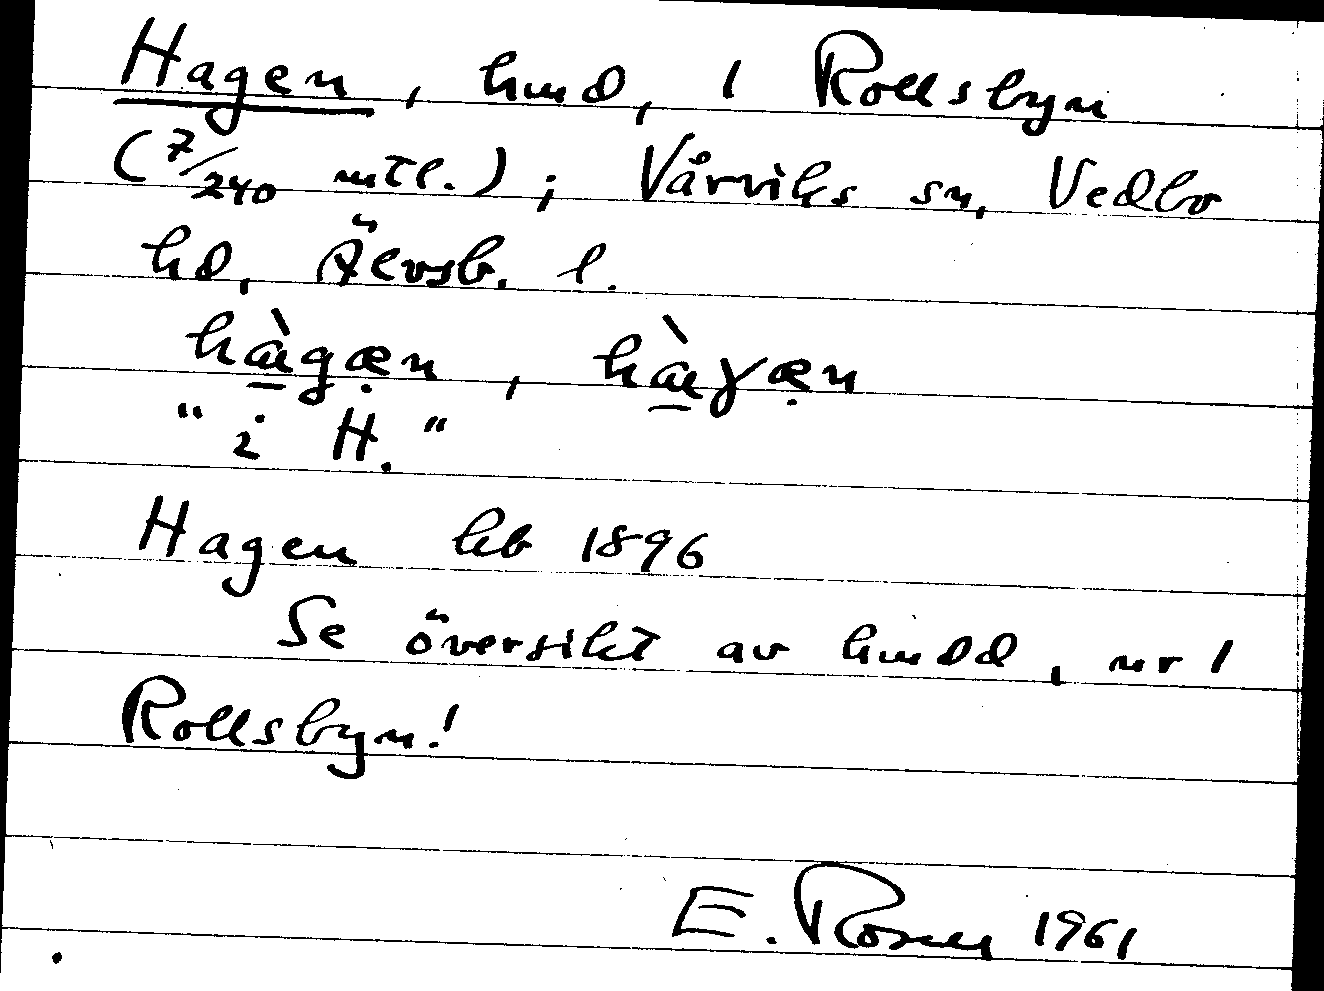 Hagen, hmd, 1 Rollsbyn
(7/240 mtl.); Vårviks sn, Vedbo
hd, Älvsb. l.
hàgæ̣n, hàɣæ̣n
"i H."
Hagen hb 1896
Se översikt av hmdd, nr 1
Rollsbyn!
E. Rosén 1961